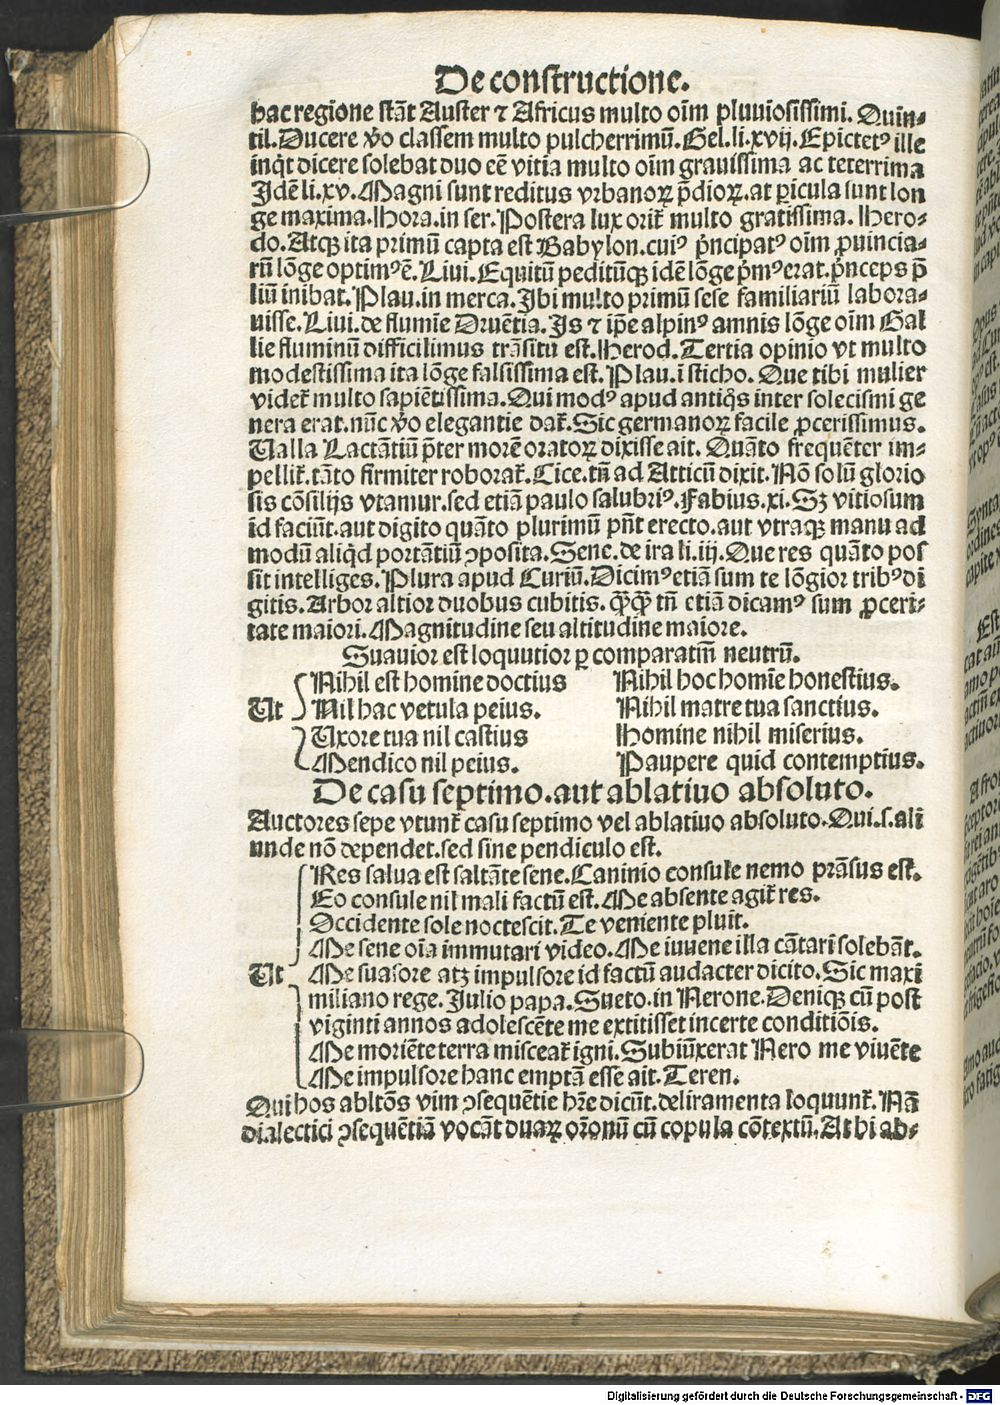 De constructione.
hac regione stāt Auster ⁊ Africus multo oīm pluuiosissimi. Quin⸗
til. Ducere v̄o classem multo pulcherrimū. Gel. li. xvij. Epictetꝰ ille
inqͥt dicere solebat duo eē vitia multo oīm grauissima ac teterrima
Idē li. xv. Magni sunt reditus vrbanoꝝ p̄dioꝝ. at ꝑicula sunt lon
ge maxima. Hora. in ser. Postera lux orit̄ multo gratissima. Hero⸗
do. Atqꝫ ita primū capta est Babylon. cuiꝰ p̄ncipatꝰ oīm ꝓuincia⸗
rū lōge optimꝰ ē. Liui. Equitū peditūqꝫ idē lōge p̄mꝰ erat. p̄nceps p̄
liū inibat. Plau. in merca. Ibi multo primū sese familiariū labora⸗
uisse. Liui. de flumie Druētia. Is ⁊ ip̄e alpinꝰ amnis lōge oīm Gal
lie fluminū difficilimus trāsitu est. Herod. Tertia opinio vt multo
modestissima ita lōge falsissima est. Plau. ī sticho. Que tibi mulier
videt̄ multo sapiētissima. Qui modꝰ apud antiqͥs inter solecismi ge
nera erat. nūc v̄o elegantie dat̄. Sic germanoꝝ facile ꝓcerissimus.
Ualla Lactātiū p̄ter morē oratoꝝ dixisse ait. Quāto frequēter im⸗
pellit̄. tāto firmiter roborat̄. Cice. tn̄ ad Atticū dixit. Nō solū glorio
sis cōsilijs vtamur. sed etiā paulo salubriꝰ. Fabius. xi. Sꝫ vitiosum
id faciūt. aut digito quāto plurimū pn̄t erecto. aut vtraqꝫ manu ad
modū aliqͥd portātiū ꝯposita. Senc. de ira li. iij. Que res quāto pos
sit intelliges. Plura apud Curiū. Dicimꝰ etiā sum te lōgior tribꝰ di
gitis. Arbor altior duobus cubitis. qͣ̄qͣ̄ tn̄ etiā dicamꝰ sum ꝓceri⸗
tate maiori. Magnitudine seu altitudine maiore.
Suauior est loquutior ꝑ comparatm̄ neutrū.
Nihil est homine doctius Nihil hoc homīe honestius.
Ut Nil hac vetula peius. Nihil matre tua sanctius.
Uxore tua nil castius Homine nihil miserius.
Mendico nil peius. Paupere quid contemptius.
De casu septimo. aut ablatiuo absoluto.
Auctores sepe vtunt̄ casu septimo vel ablatiuo absoluto. Qui. s. ali
unde nō dependet. sed sine pendiculo est.
Res salua est saltāte sene. Caninio consule nemo prāsus est.
Eo consule nil mali factū est. Me absente agit̄ res.
Occidente sole noctescit. Te veniente pluit.
Me sene oīa immutari video. Me iuuene illa cātari solebāt.
Ut Me suasore atꝫ impulsore id factū audacter dicito. Sic maxi
miliano rege. Julio papa. Sueto. in Nerone. Deniqꝫ cū post
viginti annos adolescēte me extitisset incerte conditiōis.
Me moriēte terra misceat̄ igni. Subiūxerat Nero me viuēte
Me impulsore hanc emptā esse ait. Teren.
Qui hos abltōs vim ꝯsequētie hr̄e dicūt. deliramenta loquunt̄. Nā
dialectici ꝯsequētiā vocāt duaꝝ orōnū cū copula cōtextū. At hi ab⸗
Digitalisierung gefördert durch die Deutsche Forschungsgemeinschaft - DFG